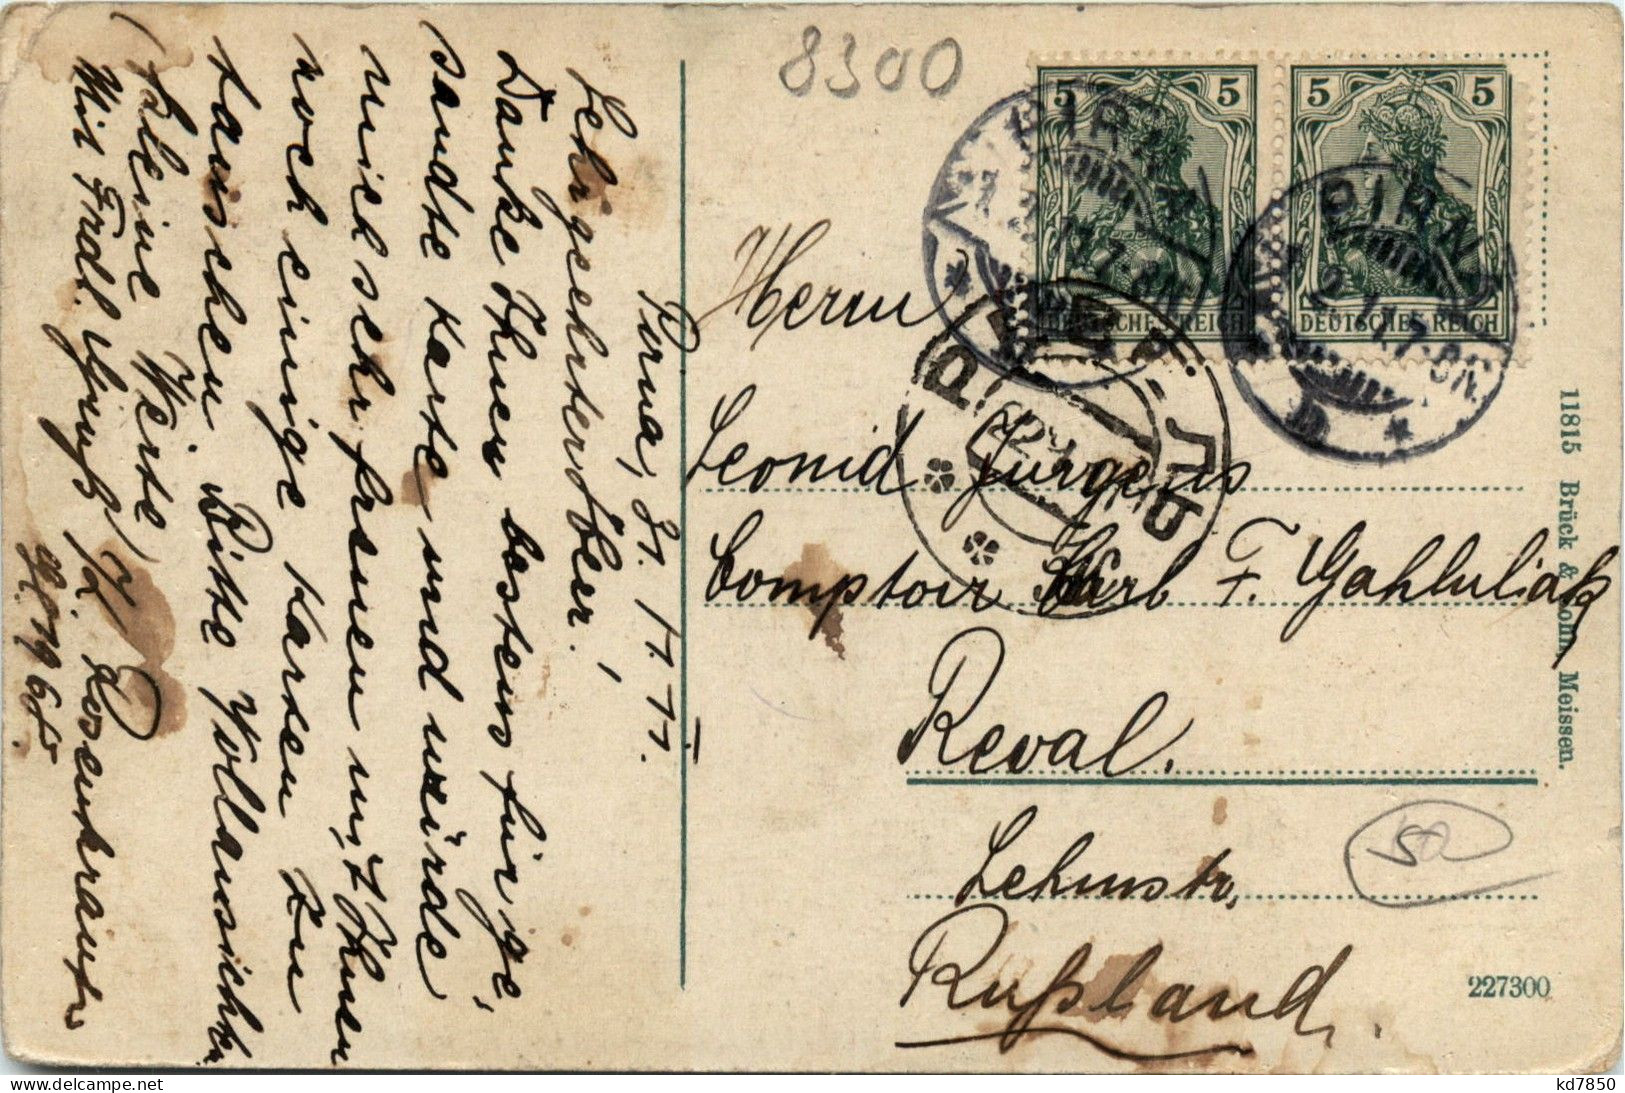 8300
5 5
5 5
DEUTSCHES REICH
DEUTSCHES REICH
PIRNA
PIRNA
Pirna, 31. 1. 11.
Sehrgeehrter Herr!
Danke Ihnen bestens für ge-
sandte Karte und würde
mich sehr freuen mit Ihnen
noch einige Karten zu
tauschen. Bitte
(kleine Werte)
Mit Frdl. Gruß
Rosenkranz
Herrn
Leonid Jürgens
Comptoir Karl F. Gahlnbäck
Reval.
Lehmstr.
Rußland.
50
11815 Brück & Sohn, Meissen.
227300
kd7850